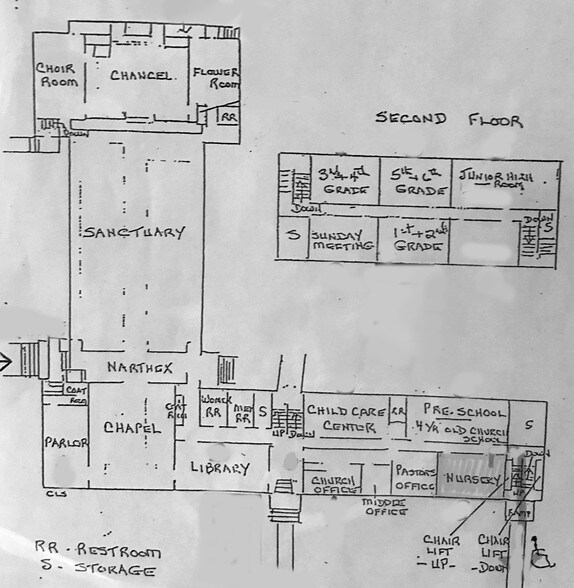 CHOIR
ROOM
CHANCEL
FLOWER
ROOM
RR
DOWN
SECOND FLOOR
3rd + 4th
GRADE
5th + 6th
GRADE
JUNIOR HIGH
ROOM
DOWN
DOWN
S
S
SUNDAY
MEETING
1st + 2nd
GRADE
SANCTUARY
NARTHEX
COAT
ROOM
PARLOR
CHAPEL
COAT
RM
WOMEN
RR
MEN
RR
S
UP DOWN
CHILD CARE
CENTER
RR
PRE-SCHOOL
4 YR OLD CHURCH
SCHOOL
S
DOWN
LIBRARY
CHURCH
OFFICE
PASTORS
OFFICE
NURSERY
UP
CLS
MIDDLE
OFFICE
RAMP
CHAIR
LIFT
-UP-
CHAIR
LIFT
-DOWN-
RR - RESTROOM
S - STORAGE